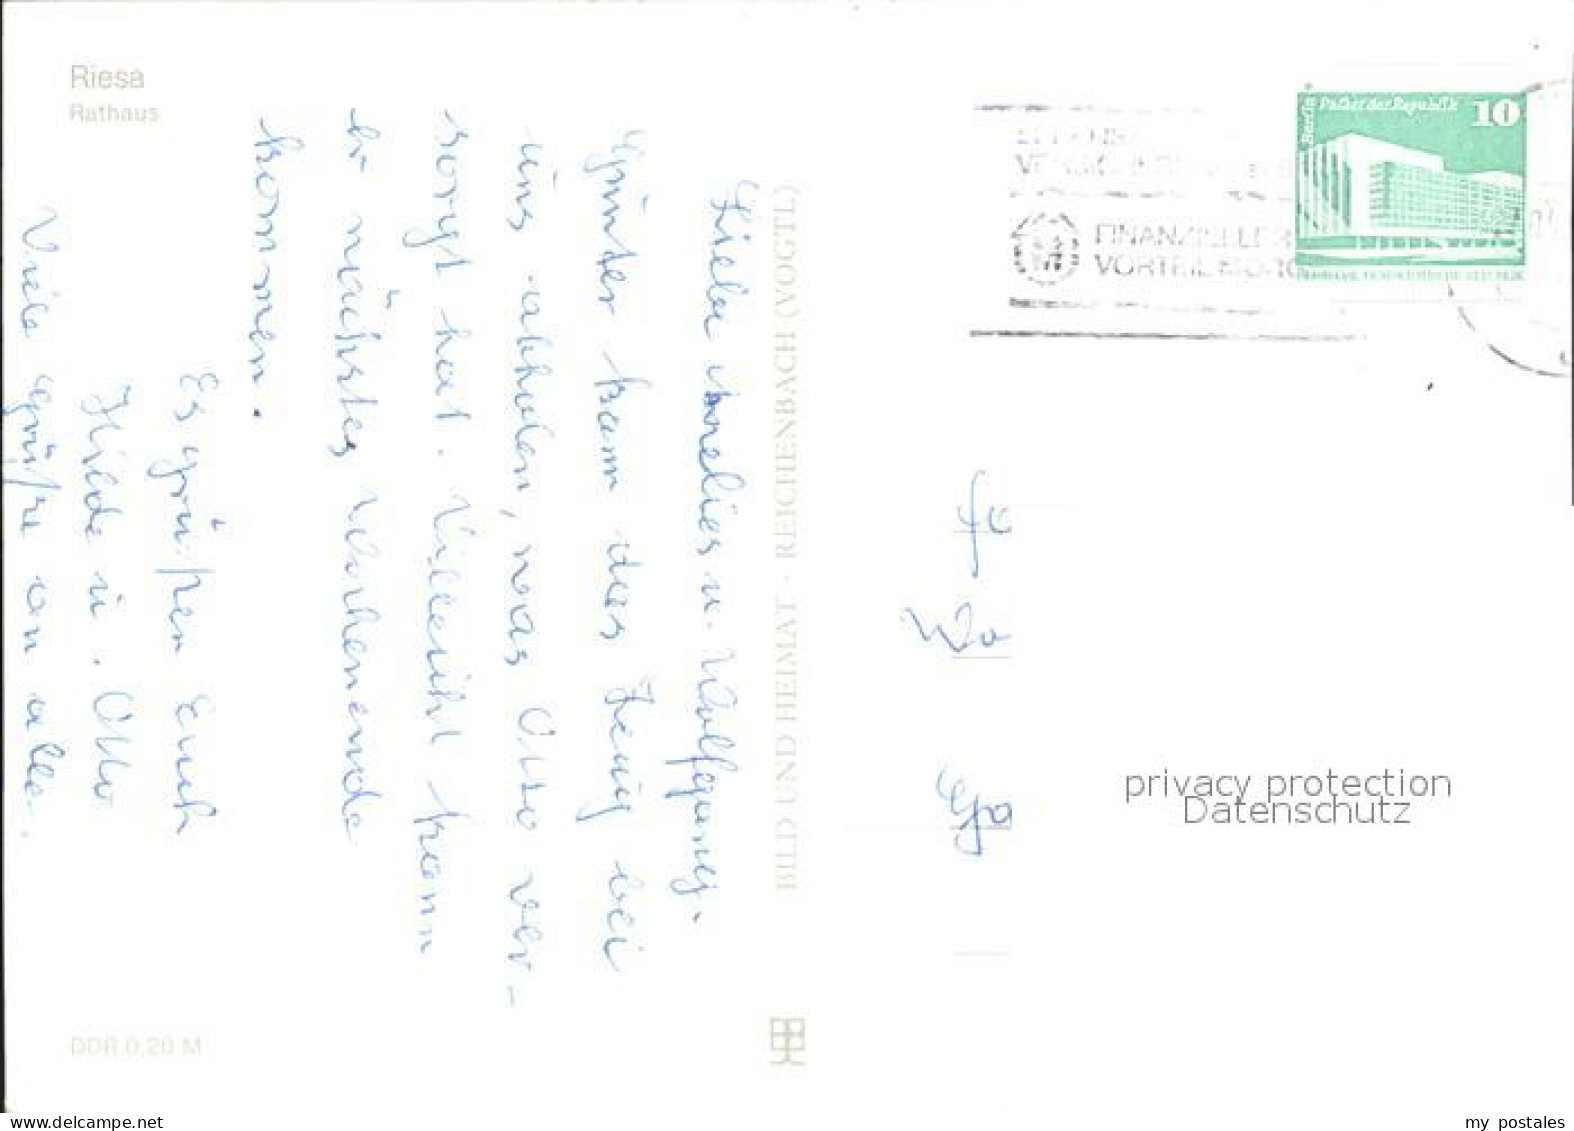 Riesa
Rathaus
Liebe Annelies u. Wolfgang.
Günter kann das Zeug bei
uns abholen, was Otto ver-
sorgt hat. Vielleicht kann
er nächstes Wochenende
kommen.
Es grüßen Euch
Hilde u. Otto
Viele Grüße an alle.
DDR 0,20 M
BILD UND HEIMAT · REICHENBACH (VOGTL)
Berlin Palast der Republik 10
FINANZIELLER
VORTEIL
privacy protection
Datenschutz
www.delcampe.net
my postales